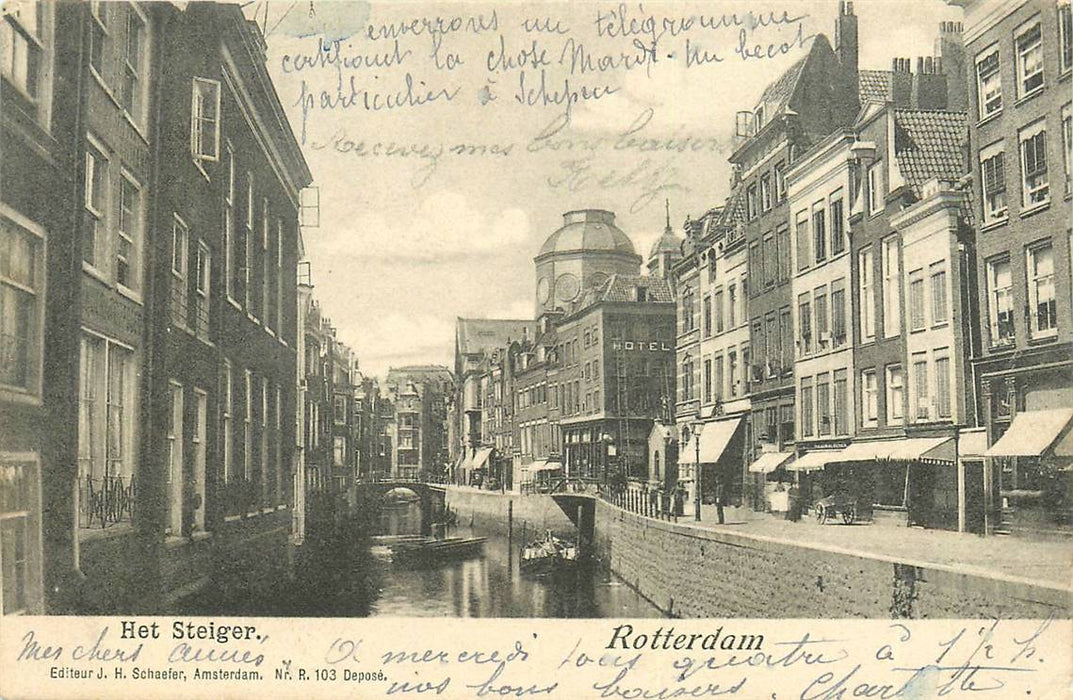 enverrons un télégramme
certifiant la chose Mardi. un becot
particulier à
Recevez mes bons baisers
HOTEL
Het Steiger.
Rotterdam
Mes chers amis. A mercredi tous quatre à 1 1/2 h.
Editeur J. H. Schaefer, Amsterdam. Nr. R. 103 Deposé.
nos bons baisers. Charlotte